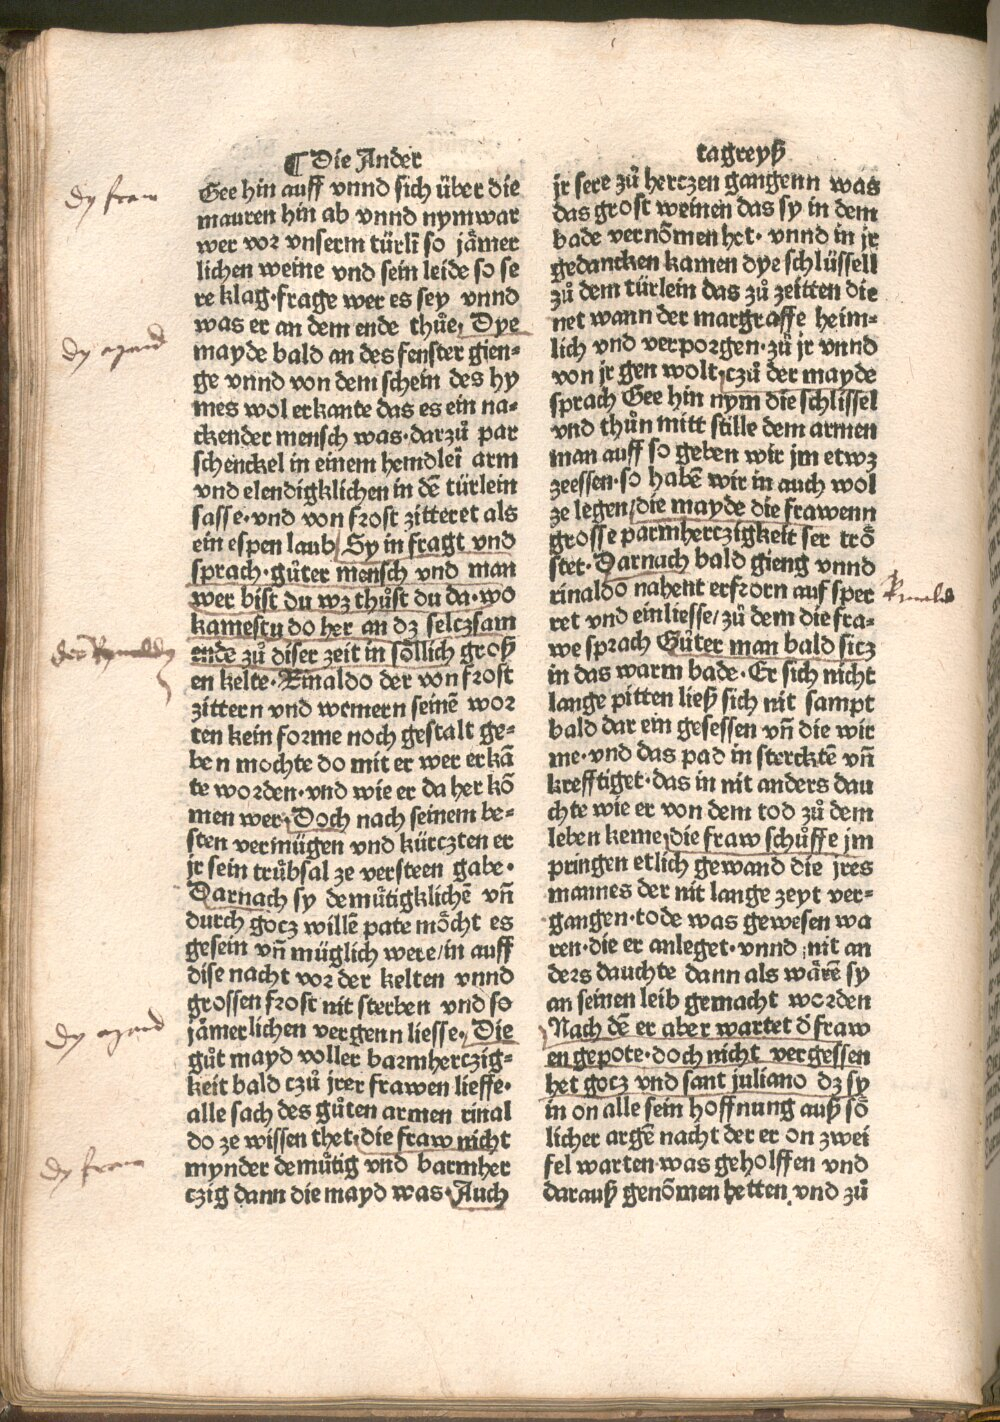 ¶ Die Ander
Gee hin auff vnnd sich über die
mauren hin ab vnnd nym war
wer vor vnserm türlī so jämer
lichen weine vnd sein leide so se
re klag·frage wer es sey vnnd
was er an dem ende thůe, Dye
mayde bald an des fenster gien⸗
ge vnnd von dem schein des hy
mes wol erkante das es ein na⸗
ckender mensch was·darzů par
schenckel in einem hemdleī arm
vnd elendigklichen in dē türlein
sasse·vnd von frost zitteret als
ein espen laub/ Sy in fragt vnd
sprach·gůter mensch vnd man
wer bist du wz thůst du da·wo
kamestu do her an dz selczsam
ende zů diser zeit in söllich groß
en kelte·Rinaldo der von frost
zittern vnd wemern seinē wor
ten kein forme noch gestalt ge⸗
ben mochte do mit er wer erkā
te worden·vnd wie er da her kō
men wer·Doch nach seinem be⸗
sten vermügen vnd kürczten er
jr sein trůbsal ze versteen gabe·
Darnach sy demůtigklichē vn̄
durch gocz willē pate möcht es
gesein vn̄ müglich were/in auff
dise nacht vor der kelten vnnd
grossen frost nit sterben vnd so
jämerlichen vergenn liesse, Die
gůt mayd voller barmherczig⸗
keit bald czů jrer frawen lieffe·
alle sach des gůten armen rinal
do ze wissen thet·die fraw nicht
mynder demůtig vnd barmher
czig dann die mayd was·Auch
tagreyß
jr sere zů herczen gangenn was
das grost weinen das sy in dem
bade vernōmen het· vnnd in jr
gedancken kamen dye schlüssell
zů dem türlein das zů zeitten die
net wann der margraffe heim⸗
lich vnd verporgen·zů jr vnnd
von jr gen wolt,czů der mayde
sprach Gee hin nym die schlissel
vnd thůn mitt stille dem armen
man auff so geben wir jm etwz
zeessen·so habē wir in auch wol
ze legen/die mayde die frawenn
grosse parmherczigkeit ser trȫ
stet·Darnach bald gieng vnnd
rinaldo nahent erfrorn auf sper
ret vnd einliesse/zů dem die fra⸗
we sprach Gůter man bald sicz
in das warm bade·Er sich nicht
lange pitten ließ sich nit sampt
bald dar ein gesessen vn̄ die wir
me·vnd das pad in stercktē vn̄
krefftiget·das in nit anders dau
chte wie er von dem tod zů dem
leben keme,die fraw schůffe jm
pringen etlich gewand die jres
mannes der nit lange zeyt ver⸗
gangen·tode was gewesen wa
ren·die er anleget·vnnd nit an
ders dauchte dann als wärē sy
an seinen leib gemacht worden
Nach dē er aber wartet d̄ fraw
en gepote·doch nicht vergessen
het gocz vnd sant juliano dz sy
in on alle sein hoffnung auß sȫ
licher argē nacht der er on zwei
fel warten was geholffen vnd
darauß genōmen hetten vnd zů
dy fraw
dy mayd
der Rynaldo
dy mayd
dy fraw
Rinaldo